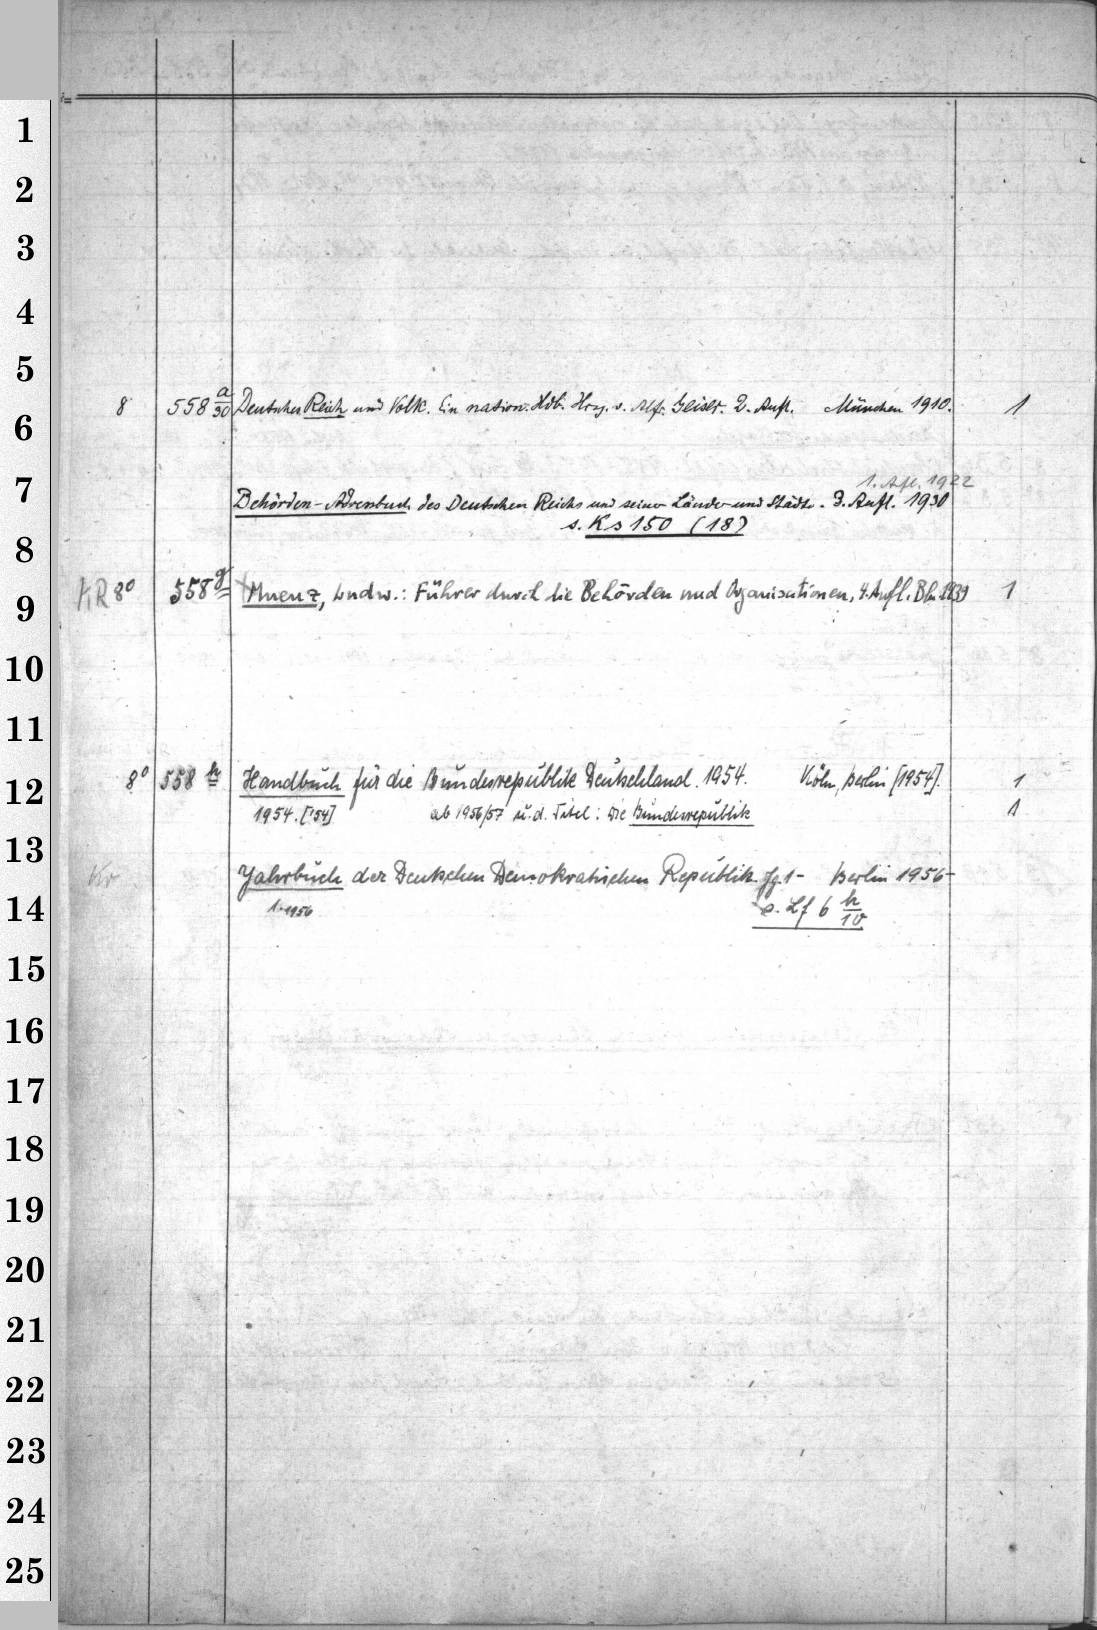 1
2
3
4
5
8 558 a/30 Deutsches Reich und Volk. Ein nation. Hdb. Hrsg. v. Alfr. Geiser. 2. Aufl. München 1910. 1
6
1. Afl. 1922
7
Behörden-Adressbuch des Deutschen Reichs und seiner Länder und Städte. 3. Aufl. 1930
s. Ks 150 (18)
8
KR 8° 558 g Muenz, Ludw.: Führer durch die Behörden und Organisationen, 4. Aufl. Bln. 1939 1
9
10
11
8° 558 h Handbuch für die Bundesrepublik Deutschland. 1954. Köln, Berlin [1954]. 1
12
1954. ['54] ab 1956/57 u. d. Titel: Die Bundesrepublik 1
13
Kr Jahrbuch der Deutschen Demokratischen Republik. Jg. 1- Berlin 1956-
1. 1956 s. Lf 6 h/10
14
15
16
17
18
19
20
21
22
23
24
25